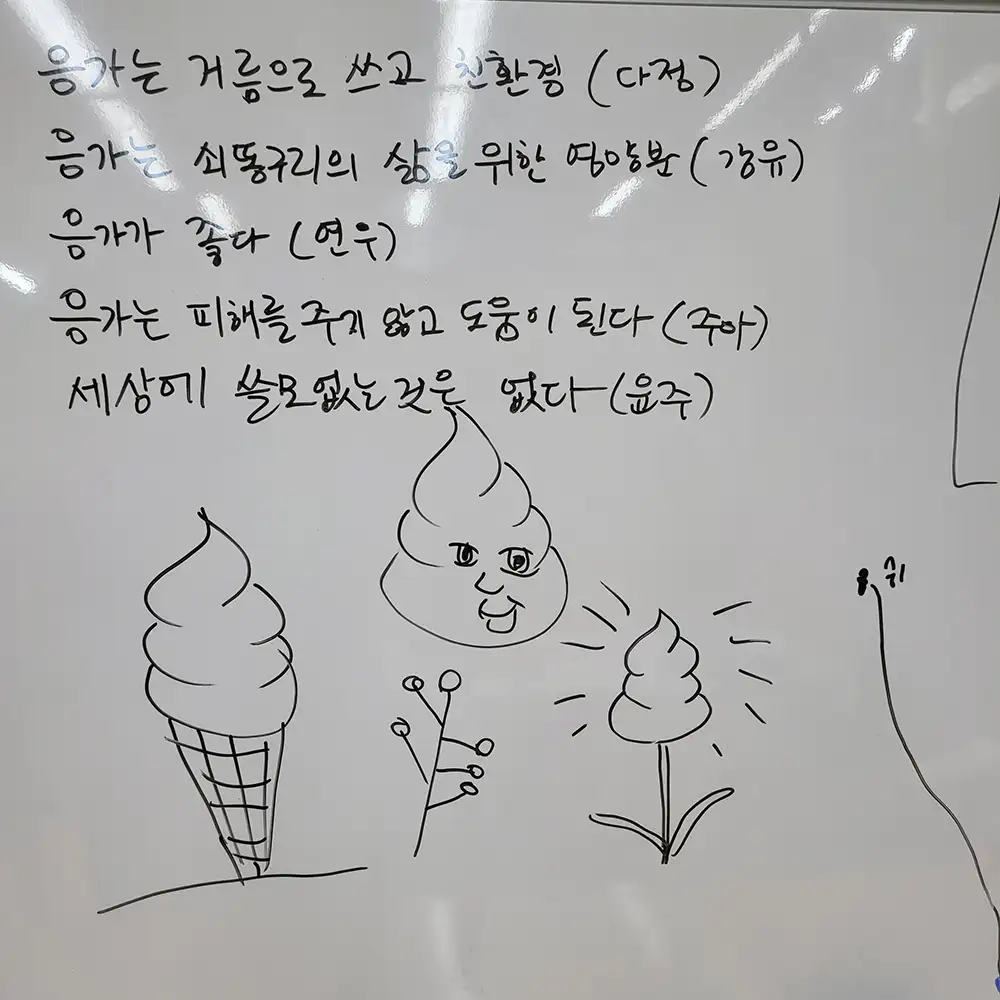 응가는 거름으로 쓰고 친환경 (다정)
응가는 쇠똥구리의 삶을 위한 영양분 (강유)
응가가 좋다 (연우)
응가는 피해를 주지 않고 도움이 된다 (주아)
세상에 쓸모없는 것은 없다 (윤주)